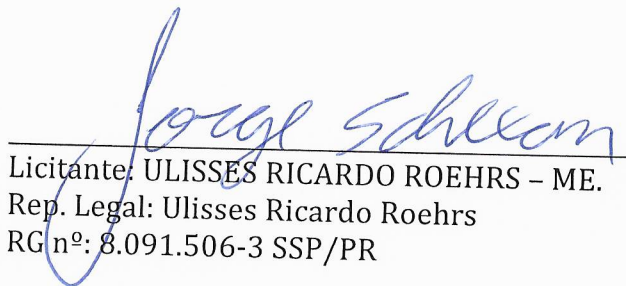 Jorge
Licitante: ULISSES RICARDO ROEHRS – ME.
Rep. Legal: Ulisses Ricardo Roehrs
RG nº: 8.091.506-3 SSP/PR